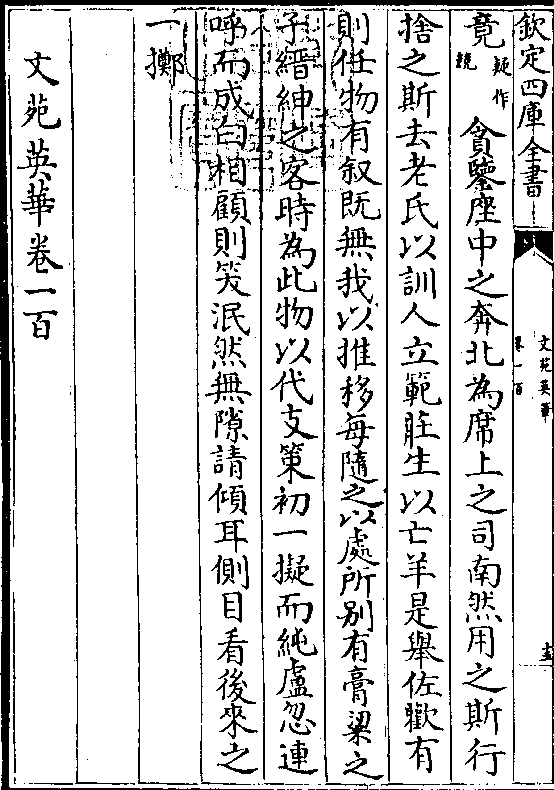 欽定四庫全書
文苑英華
卷一百
竟疑作競貪鑒座中之奔北為席上之司南然用之斯行
捨之斯去老氏以訓人立範莊生以亡羊是舉佐歡有
則任物有叙既無我以推移每隨之以處所別有膏粱之
子縉紳之客時為此物以代支策初一擬而純盧忽連
呼而成白相顧則笑泯然無隙請傾耳側目看後來之
一擲
文苑英華卷一百